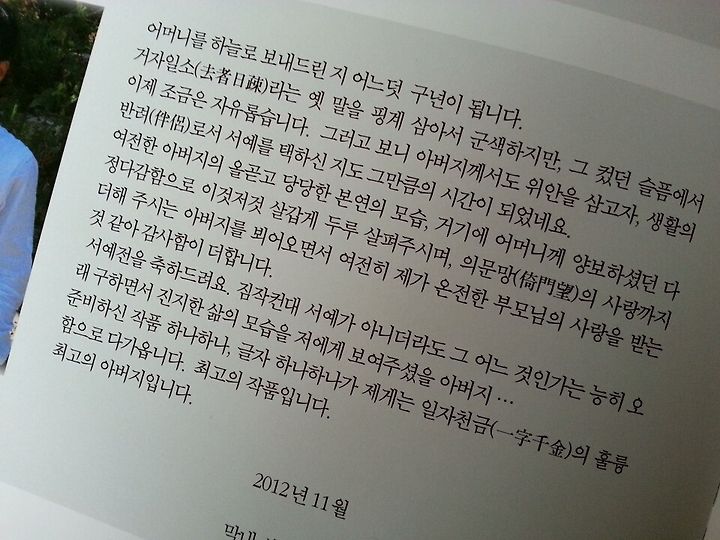 어머니를 하늘로 보내드린 지 어느덧 구년이 됩니다.
거자일소(去者日疎)라는 옛 말을 핑계 삼아서 군색하지만, 그 컸던 슬픔에서
이제 조금은 자유롭습니다. 그러고 보니 아버지께서도 위안을 삼고자, 생활의
반려(伴侶)로서 서예를 택하신 지도 그만큼의 시간이 되었네요.
여전한 아버지의 올곧고 당당한 본연의 모습, 거기에 어머니께 양보하셨던 다
정다감함으로 이것저것 살갑게 두루 살펴주시며, 의문망(倚門望)의 사랑까지
더해 주시는 아버지를 뵈어오면서 여전히 제가 온전한 부모님의 사랑을 받는
것 같아 감사함이 더합니다.
서예전을 축하드려요. 짐작컨대 서예가 아니더라도 그 어느 것인가는 능히 오
래 구하면서 진지한 삶의 모습을 저에게 보여주셨을 아버지 …
준비하신 작품 하나하나, 글자 하나하나가 제게는 일자천금(一字千金)의 훌륭
함으로 다가옵니다. 최고의 작품입니다.
최고의 아버지입니다.
2012년 11월
막내